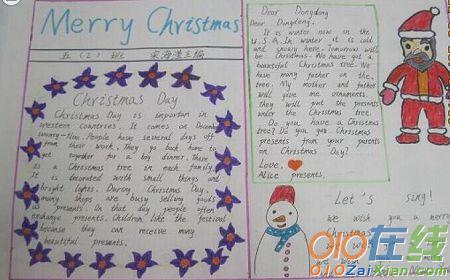 Merry Christmas
五(2)班 梁海滢主编
Christmas Day
Christmas Day is important in
western countries. It comes on December
twenty-five. People have several days off
from their work. They go back home to
get together for a big dinner. There
is a Christmas tree in each family.
It is decorated with small things and
bright lights. During Christmas Day,
many shops are busy selling goods
as presents. On that day people often
exchange presents. Children like the festival
because they can receive many
beautiful presents.
Dear Dongdong
Dear Dingdong,
It is winter now in the
U.S.A. In winter it is cold
and snowy here. Tomorrow will
be Christmas. We have got a
beautiful Christmas tree. We
have many father on the
tree. My mother and father
will give me ornaments.
they will put the presents
under the Christmas tree.
Do you have a Christmas
tree? Do you get Christmas
presents from your parents
on Christmas Day?
Love,
Alice presents.
Let's sing!
we wish you a merry
Christmas
we wish
we wish
010在线
010ZaiXian.com